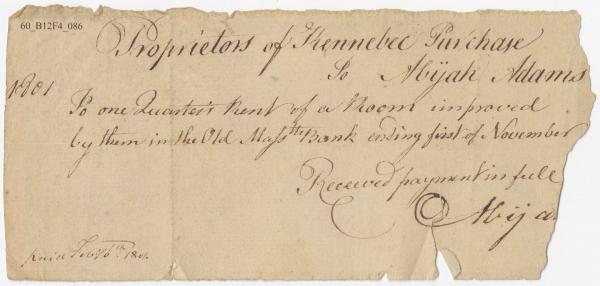 60_B12F4_086
Proprietors of Kennebec Purchase
To Abijah Adams
1801
To one Quarter's Rent of a Room improved
by them in the Old Masstts Bank ending first of November
Received payment in full
Abija
paid Feb